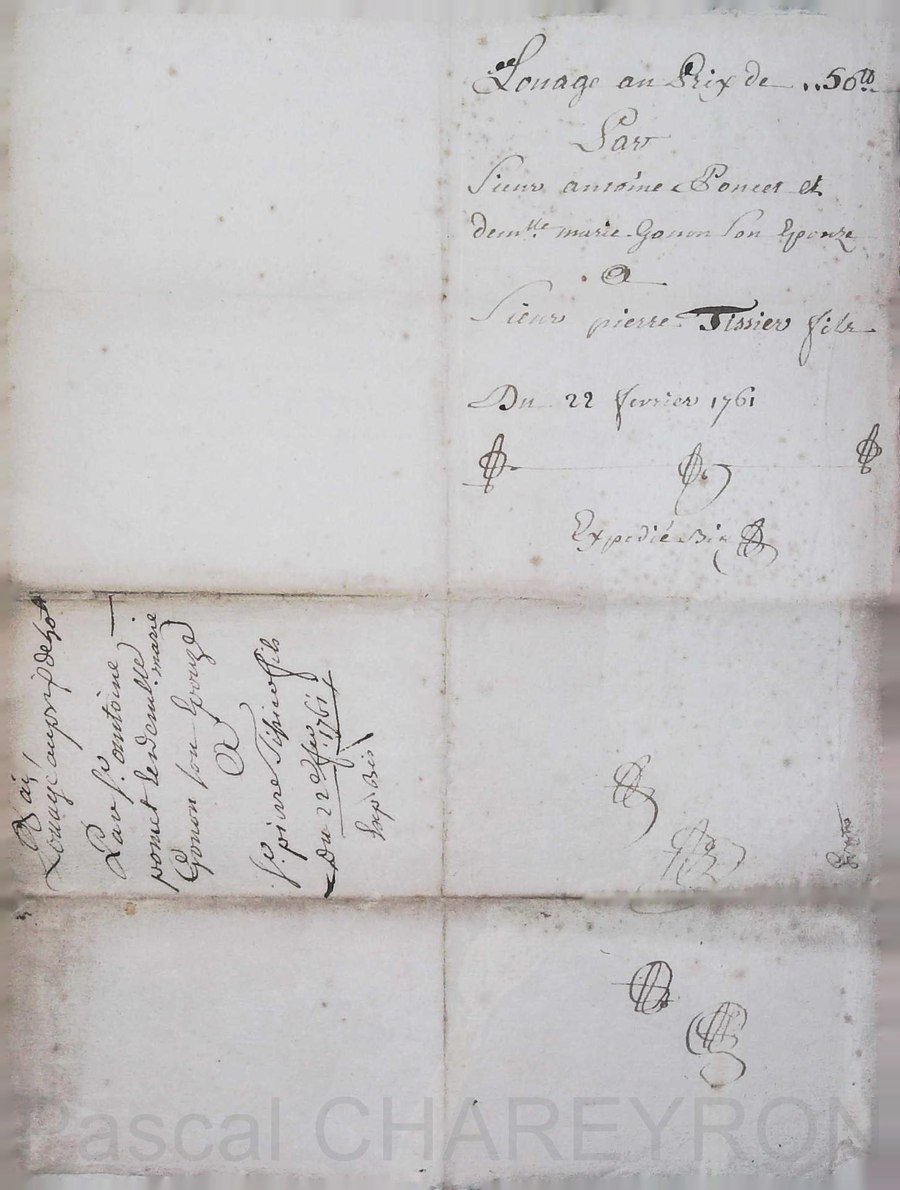 Louage au Prix de 50ᵗᵗ
Par
Sieur antoine Poncet et
demᵉˡˡᵉ marie Gonon Son Epouze
A
Sieur pierre Tissier fils
Du 22 fevrier 1761
Expedié Bis
Louage au prix de 50ᵗᵗ
Par Sʳ. antoine
poncet et demᵉˡˡᵉ marie
Gonon son Epouze
A
Sʳ. pierre Tissier fils
Du 22ᵉ fevʳ. 1761
Exp. Bis
Pascal CHAREYRON